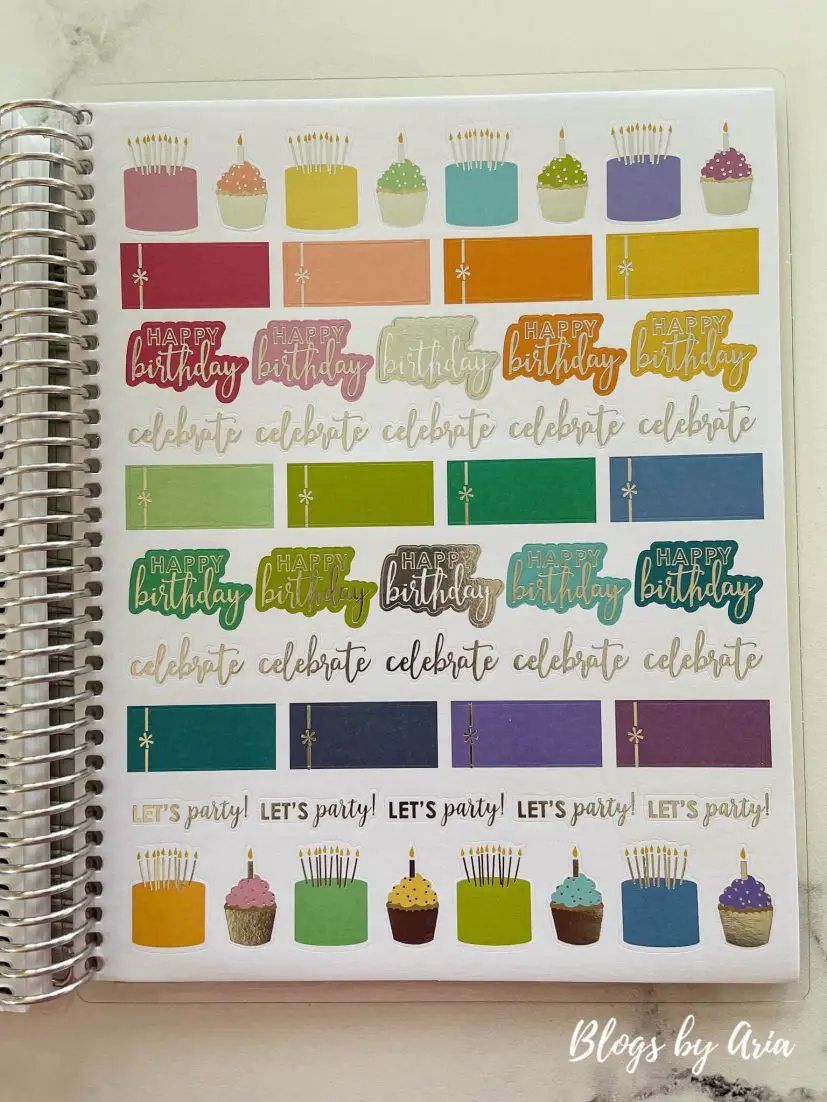 HAPPY HAPPY HAPPY HAPPY HAPPY
birthday birthday birthday birthday birthday
celebrate celebrate celebrate celebrate celebrate
HAPPY HAPPY HAPPY HAPPY HAPPY
birthday birthday birthday birthday birthday
celebrate celebrate celebrate celebrate celebrate
LET'S party! LET'S party! LET'S party! LET'S party! LET'S party!
Blogs by Aria